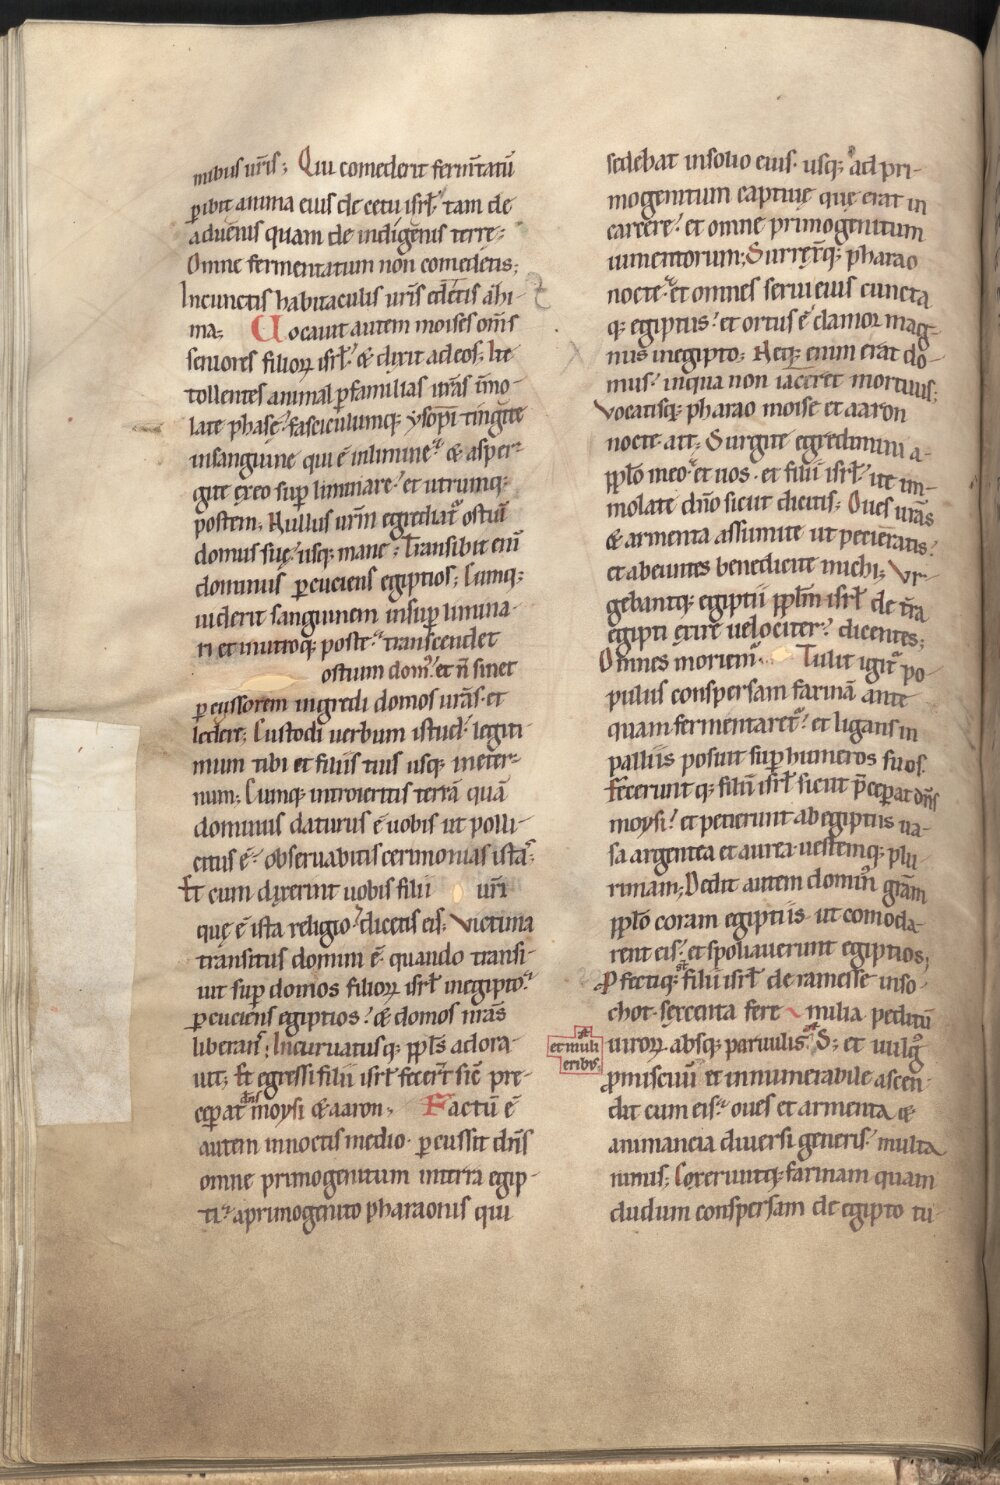 mibus ur̄is; Qui comederit ferm̄tatū
ꝑibit anima eius de cetu isrł tam de
aduenis quam de indigenis terrę;
Omne fermentatum non comedetis;
Incunctis habitaculis ur̄is edetis azhi-
ma; Uocauit autem moises om̄s
seniores filioꝝ isrł. & dixit ad eos; Ite
tollentes animal ꝑ familias ur̄as īmo-
late phase. fasciculumq; ysopi tingite
insanguine qui ē inlimine. & asper-
gite ęx eo suꝑ liminare. et utrumq;
postem; Nullus ur̄m egrediat᷑ ostiū
domus suę. usq; mane; Transibit enī
dominus ꝑcuciens egiptios; Cumq;
uiderit sanguinem insuꝑ limina-
ri et inutroq; poste. transcendet
ostium domꝰ. et n̄ sinet
ꝑcussorem ingredi domos ur̄as. et
ledere; Custodi uerbum istud. legiti
mum tibi et filiis tuis usq; ineter-
num; Cumq; introieritis terrā quā
dominus daturus ē uobis ut polli-
citus ē. obseruabitis cerimonias istas;
Et cum dixerint uobis filii ur̄i
quę ē ista religio. dicetis eis; Victima
transitus domini ē. quando transi-
uit suꝑ domos filioꝝ isrł inegipto.
ꝑcuciens egiptios. & domos nr̄as
liberans; Incuruatusq; ppl̄s adora-
uit; Et egressi filii isrł fecer̄t sic̄ pre-
ceꝑat dn̄s moysi & aaron; Factū ē
autem innoctis medio. ꝑcussit dn̄s
omne primogenitum interra egip-
ti. aprimogenito pharaonis qui
sedebat insolio eius. usq; ad pri-
mogenitum captiuę quę erat in
carcere. et omne primogenitum
iumentorum; Surręx̄q; pharao
nocte. et omnes serui eius cuncta
q; egiptus. et ortus ē clamor mag-
nus inegipto; Neq; enim erat do-
mus. inqua non iaceret mortuus;
Vocatisq; pharao moise et aaron
nocte ait; Surgite egredimini a-
ppl̄o meo. et uos. et filii isrł. ite im-
molate dn̄o sicut dicitis; Oues ur̄as
& armenta assumite ut pecieratis.
et abeuntes benedicite michi; Vr-
gebantq; egiptii ppl̄m isrł de t̄ra
egipti exire uelociter. dicentes;
Omnes moriem᷑. Tulit igit᷑ po-
pulus conspersam farinā ante
quam fermentaret᷑. et ligans in
palliis posuit suꝑ humeros suos.
Fecerunt q; filii isrł sicut p̄ceꝑat dn̄s
moysi. et petierunt ab egiptiis ua-
sa argentea et aurea. uestemq; plu-
rimam; Dedit autem domin᷒ gr̄am
ppl̄o coram egiptiis. ut comoda-
rent eis. et spoliauerunt egiptios;
Pfectiq; st̄ filii isrł de ramesse inso-
chot. sexcenta fere milia peditū
uiroꝝ absq; paruulis. S; et uulgꝰ
et muli
eribꝰ;
ꝓmiscuū et innumerabile ascen-
dit cum eis. oues et armenta &
animancia diuersi generis. multa
nimis; Coxeruntq; farinam quam
dudum conspersam de egipto tu-